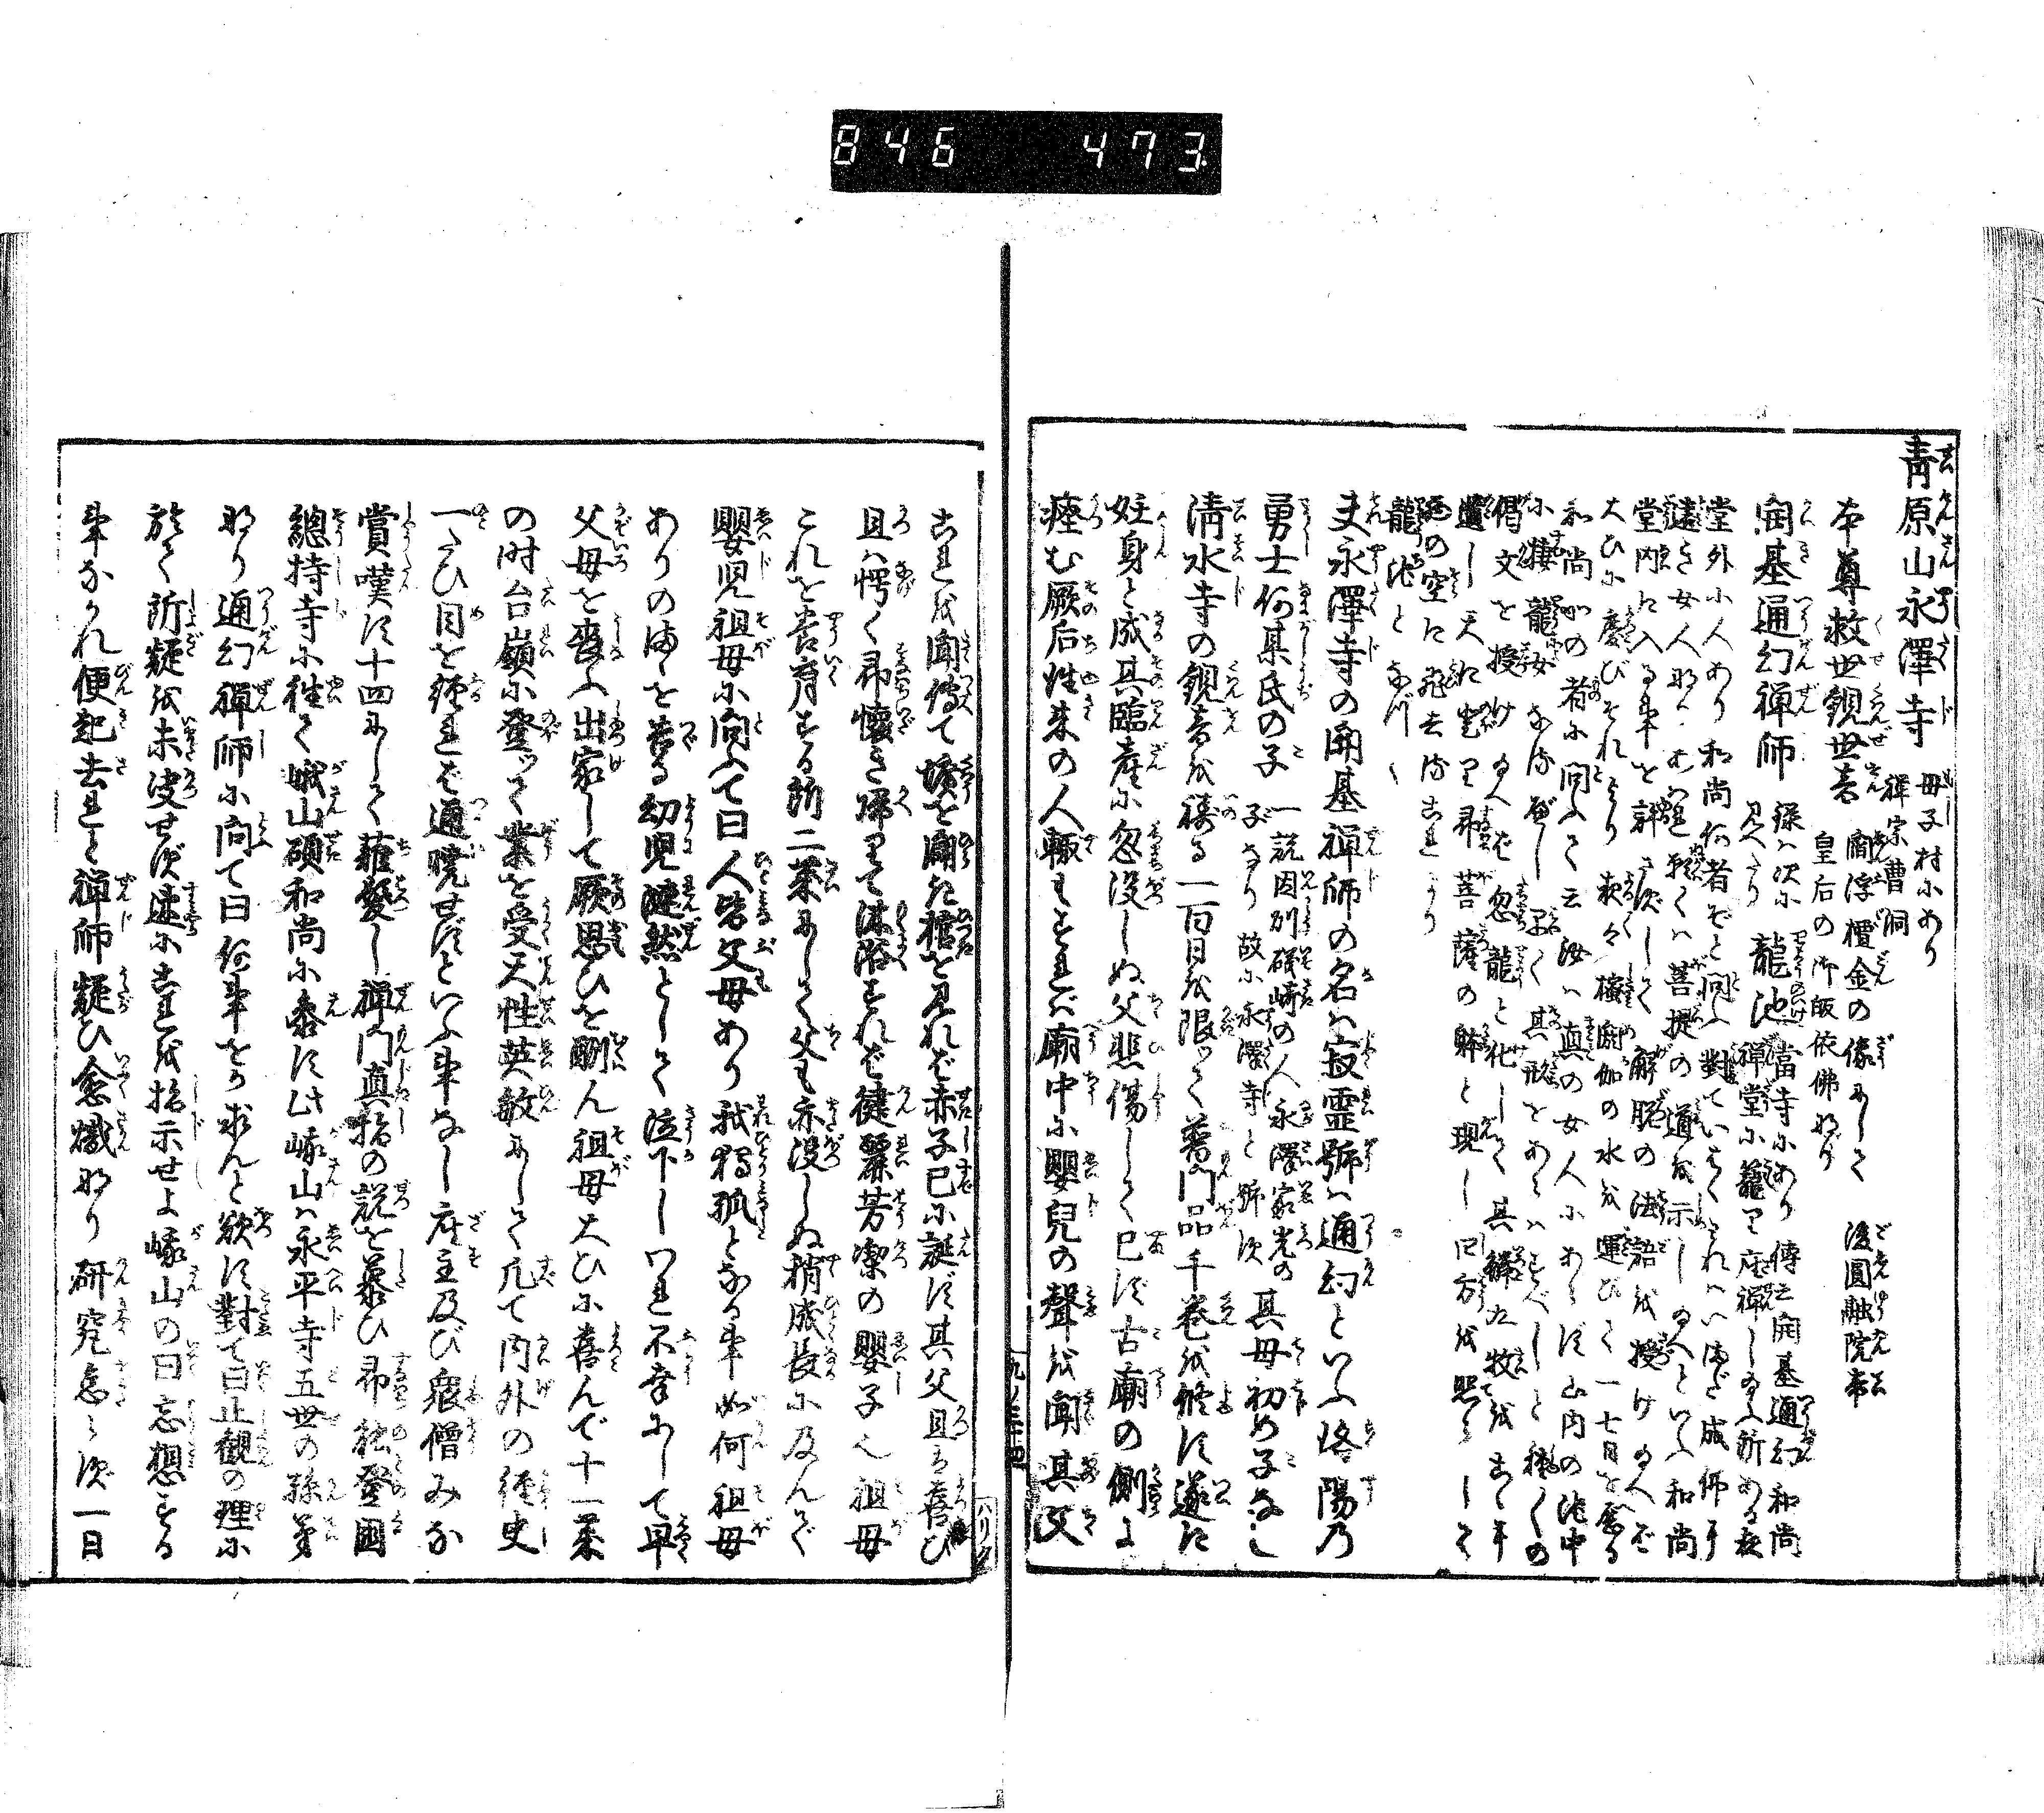 846 473
青原山永澤寺 母子村にあり
禅宗曹洞
本尊救世観世音 閻浮檀金の像にして 後圓融院帝
皇后の御皈依佛なり
開基通幻禅師 録ハ次に見へたり
龍池 當寺にあり 傳云開基通幻和尚
禅堂に籠りて座禅し給ふ所ある夜
堂外に人あり和尚何者ぞと問ふ對ていはくこれハいまだ成佛
遠き女人なり あハ 願くハ菩提の道を示し給へといふ和尚
堂内に入る事を許さずして解脱の法語を授け給へば
大ひに慶びそれより夜々 閼伽の水を運びて一七日を歴る
和尚かの者に問ふて云汝ハ真の女人にあらず山内の池中
に棲龍女なるべし 早く其形をあらハすべしと 種〻の
偈文を授け給へば忽龍と化して其
遺し天に登り 菩薩の躰と現し四方を照らして
の空に飛去るこれより
龍池となづく
夫永澤寺の開基禅師の名ハ寂霊號ハ通幻といふ洛陽乃
勇士何某氏の子 一説因州 の人永澤 の
子なり故に永澤寺と號次
其母初め子なし
清水寺の観音を祷る一百日を限つて普門品千巻を修す遂に
妊身と成其臨産に忽没しぬ父悲傷して已ず古廟の側に
瘞む厥后性来の人輙もすれバ廟中に嬰兒の聲を聞其父
これを聞傳て墳を 棺を見れば赤子已に誕ず其父且ハ喜び
且ハ愕く即懐き帰りて沐浴すれば 麗芳潔の嬰子也祖母
これを養育する所二葉にして父も亦没しぬ稍成長に及んで
嬰児祖母に向ふて曰人皆父母あり我獨孤となる事如何祖母
ありのまゝを告る幼児 然として泣下しわれ不幸にして早
父母を喪ふ出家して厥恩ひを酬ん祖母大ひに喜んで十一葉
の時台嶺に登ッて業を受天性英敏にして凡て内外の經史
一たひ目を經れば通暁せずといふ事なし座主及び衆僧みな
賞嘆す十四にして薙髪し禅門直指の説を慕ひ即能登國
總持寺に徃て峨山碩和尚に参ず此峨山ハ永平寺五世の孫第
なり通幻禅師に向て曰何事をか求んと欲ず對て曰止観の理に
於て所疑を未決せず速にこれを指示せよ峨山の曰忘想する
事なかれ便起去れと禅師疑ひ愈熾なり研究怠らず一日